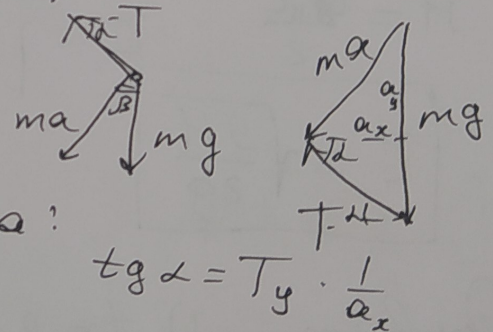 α T
β
ma
mg
ma
a_y
a_x
mg
α
T
a :
tg α = T_y · 1/a_x